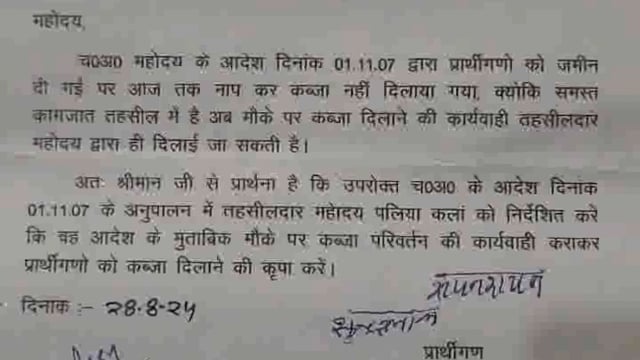 महोदय,
च0अ0 महोदय के आदेश दिनांक 01.11.07 द्वारा प्रार्थीगणो को जमीन
दी गई पर आज तक नाप कर कब्जा नहीं दिलाया गया, क्योकि समस्त
कागजात तहसील में है अब मौके पर कब्जा दिलाने की कार्यवाही तहसीलदार
महोदय द्वारा ही दिलाई जा सकती है।
अतः श्रीमान जी से प्रार्थना है कि उपरोक्त च0अ0 के आदेश दिनांक
01.11.07 के अनुपालन में तहसीलदार महोदय पलिया कलां को निर्देशित करे
कि वह आदेश के मुताबिक मौके पर कब्जा परिवर्तन की कार्यवाही कराकर
प्रार्थीगणो को कब्जा दिलाने की कृपा करें।
दिनांक :- 28-8-24
प्रार्थीगण